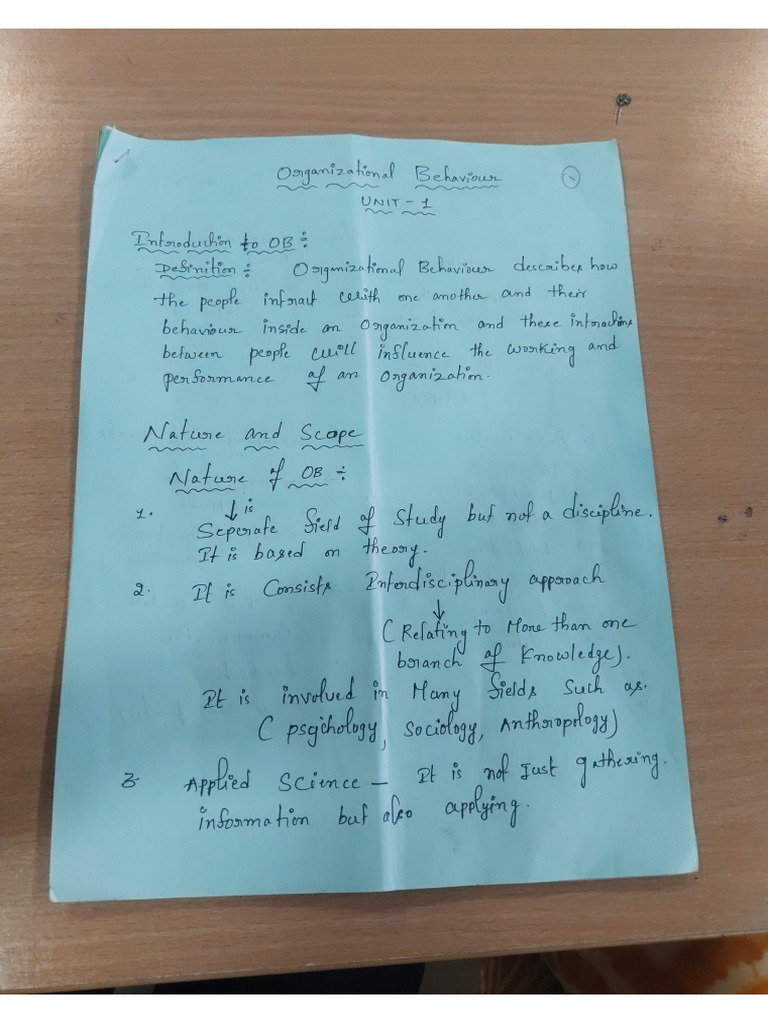 Organizational Behaviour
1
UNIT - 1
Introduction to OB :
Definition : Organizational Behaviour describes how
the people intract with one another and their
behaviour inside an Organization and these intractions
between people will influence the working and
performance of an Organization.
Nature and Scope
Nature of OB :
1. ↓ is
Seperate field of study but not a discipline.
It is based on theory.
2. It is Consists Interdisciplinary approach
↓
( Relating to More than one
branch of Knowledge).
It is involved in Many fields Such as.
( psychology, Sociology, Anthropology)
3. Applied Science - It is not Just gathering.
information but also applying.